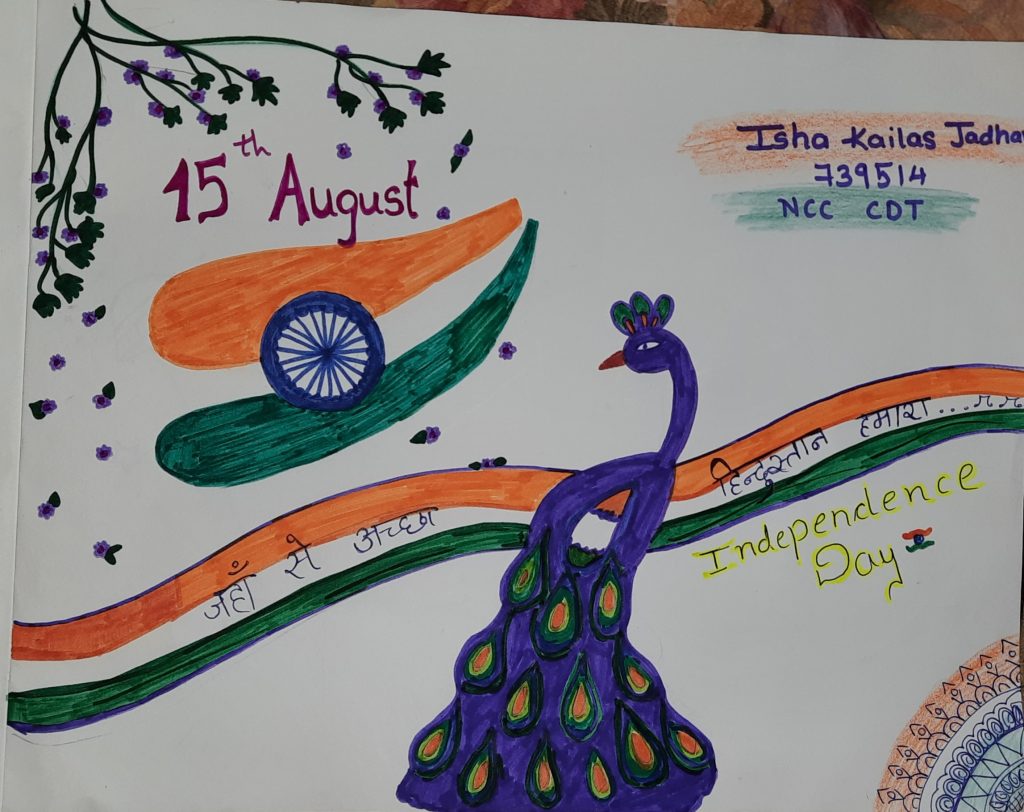 15th August
Isha Kailas Jadha
739514
NCC CDT
जहाँ से अच्छा हिन्दुस्तान हमारा...
Independence
Day